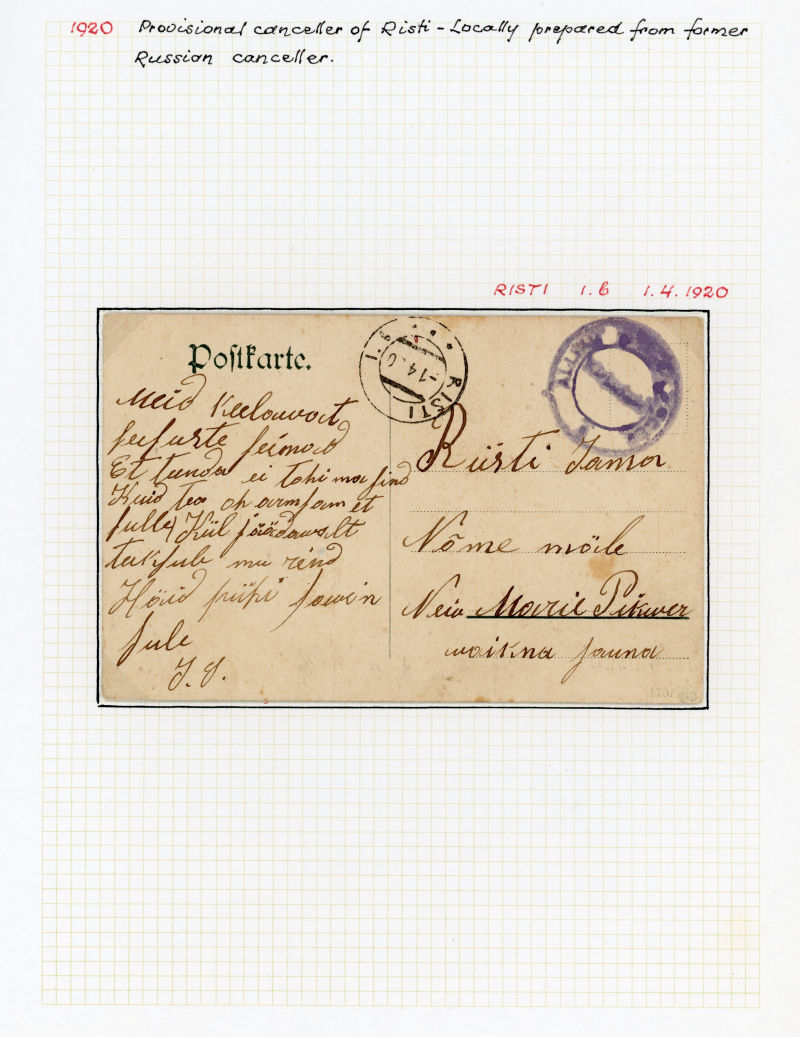 1920 Provisional canceller of Risti - Locally prepared from former
Russian canceller.
RISTI 1.b 1.4.1920
Postkarte.
RISTI
-1 4
ALLI
Meid Keelawat
seisma
Et tunda ei tohi ma sind
Kuid tea oh armsam et
sulle Kül jäädawalt
tuksub mu rind
Häid pühi sowin
sule
J. S.
Risti Jama
Nõme möile
Neiu Marie Pikwer
waikna sauna